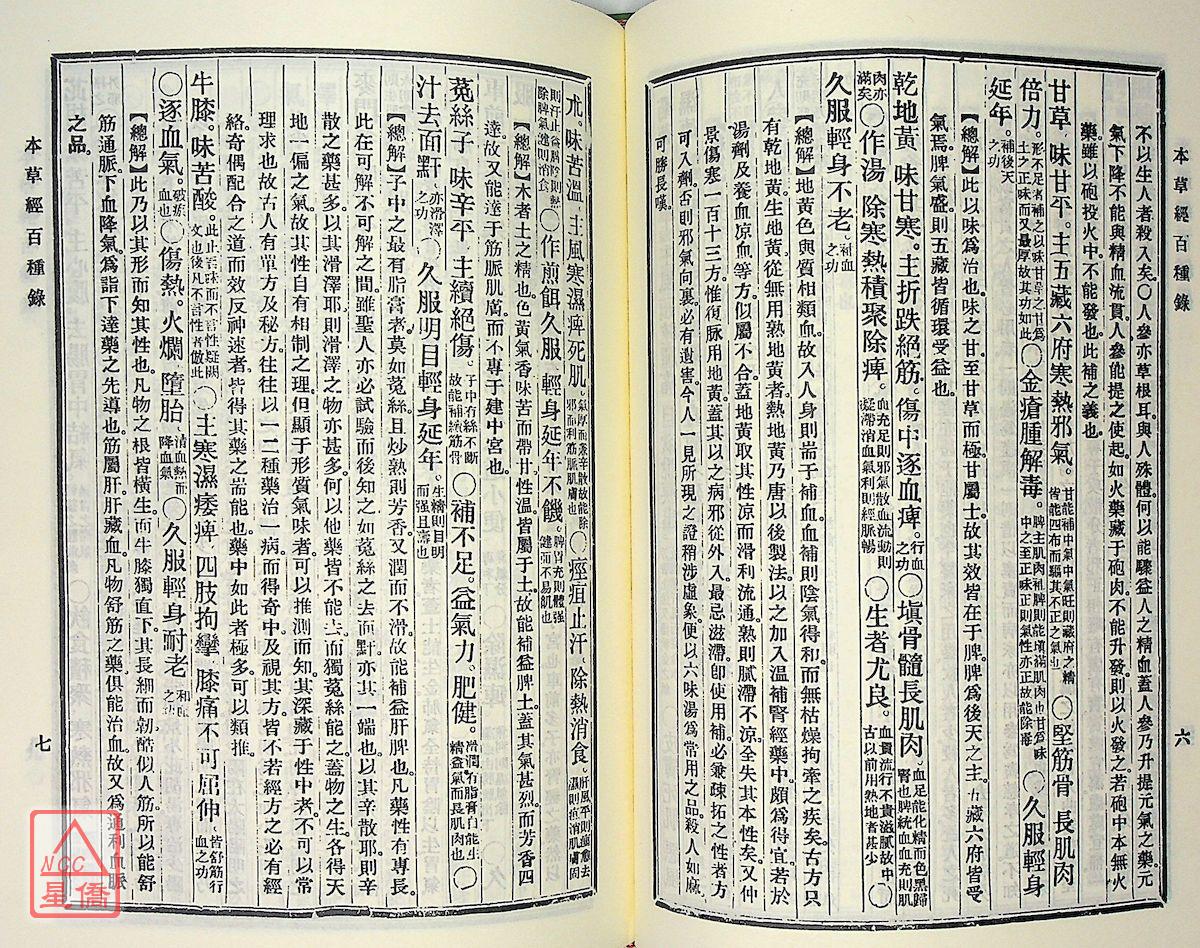 本草經百種錄
六
不以生人者殺人矣〇人參亦草根耳與人殊體何以能驟益人之精血蓋人參乃升提元氣之藥元
氣下降不能與精血流貫人參能提之使起如火藥藏于砲內不能升發則以火發之若砲中本無火
藥雖以砲投火中不能發也此補之義也
甘草味甘平主五藏六府寒熱邪氣甘能補中氣中氣旺則藏府之精皆能四布而驅其不正之氣也〇堅筋骨長肌肉
倍力形不足者補之以味甘草之甘爲土之正味而又最厚故其功如此〇金瘡腫解毒脾主肌肉和脾則能塡滿肌肉也甘爲味中之至正味正則氣性亦正故能除毒〇久服輕身
延年補後天之功
【總解】此以味爲治也味之甘至甘草而極甘屬土故其效皆在于脾脾爲後天之主五藏六府皆受
氣焉脾氣盛則五藏皆循環受益也
乾地黃味甘寒主折跌絕筋傷中逐血痺行血之功〇塡骨髓長肌肉血足能化精而色黑歸腎也脾統血血充則肌
肉亦滿矣〇作湯除寒熱積聚除痺血充足則邪氣散血流動則凝滯消血氣利則經脈暢〇生者尤良血貴流行不貴滋膩故中古以前用熟地者甚少〇
久服輕身不老補血之功
【總解】地黃色與質相類血故入人身則耑于補血血補則陰氣得和而無枯燥拘牽之疾矣古方只
有乾地黃生地黃從無用熟地黃者熱地黃乃唐以後製法以之加入溫補腎經藥中頗爲得宜若於
湯劑及養血凉血等方似屬不合蓋地黃取其性凉而滑利流通熟則膩滯不凉全失其本性矣又仲
景傷寒一百十三方惟復脉用地黃蓋其以之病邪從外入最忌滋滯卽使用補必兼疎拓之性者方
可入劑否則邪氣向裏必有遺害今人一見所現之證稍涉虛象便以六味湯爲常用之品殺人如麻
可勝長嘆
朮味苦溫主風寒濕痺死肌氣厚而兼辛散故能除邪而利筋脈肌膚也〇痙疸止汗除熱消食
則汗止益脾陰則熱除脾氣進則消食〇作煎餌久服輕身延年不饑脾胃充則體强健而不易飢也
【總解】朮者土之精也色黃氣香味苦而帶甘性溫皆屬于土故能補益脾土蓋其氣甚烈而芳香四
達故又能達于筋脈肌膚而不專于建中宮也
菟絲子味辛平主續絕傷子中有絲不斷故能補續筋骨〇補不足益氣力肥健滑潤有脂膏自能生精益氣而長肌肉也〇
汁去面䵟亦滑澤之功〇久服明目輕身延年生精則目明而强且壽也
【總解】子中之最有脂膏者莫如菟絲且炒熟則芳香又潤而不滑故能補益肝脾也凡藥性有專長
此在可解不可解之間雖聖人亦必試驗而後知之如菟絲之去面䵟亦其一端也以其辛散耶則辛
散之藥甚多以其滑澤耶則滑澤之物亦甚多何以他藥皆不能去而獨菟絲能之蓋物之生各得天
地一偏之氣故其性自有相制之理但顯于形質氣味者可以推測而知其深藏于性中者不可以常
理求也故古人有單方及秘方往往以一二種藥治一病而得奇中及視其方皆不若經方之必有經
絡奇偶配合之道而效反神速者皆得其藥之耑能也藥中如此者極多可以類推
牛膝味苦酸此止言味而不言性疑闕文也後凡不言性者倣此〇主寒濕痿痺四肢拘攣膝痛不可屈伸皆舒筋行血之功
〇逐血氣破瘀血也〇傷熱火爛墮胎清血熱而降血氣〇久服輕身耐老
【總解】此乃以其形而知其性也凡物之根皆橫生而牛膝獨直下其長細而韌酷似人筋所以能舒
筋通脈下血降氣爲諸下達藥之先導也筋屬肝肝藏血凡物舒筋之藥俱能治血故又爲通利血脈
之品
本草經百種錄
七
NCC
星僑